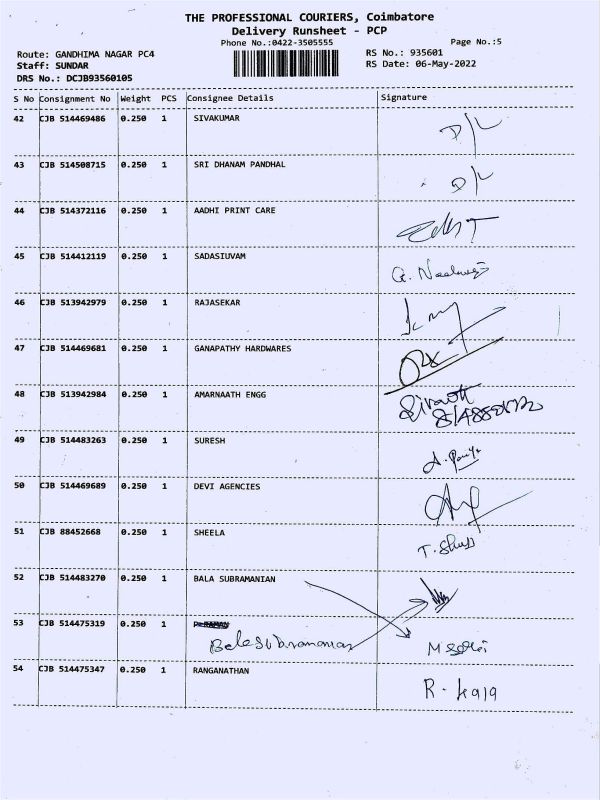 THE PROFESSIONAL COURIERS, Coimbatore
Delivery Runsheet - PCP
Phone No.:0422-3505555
Page No.:5
Route: GANDHIMA NAGAR PC4
RS No.: 935601
Staff: SUNDAR
RS Date: 06-May-2022
DRS No.: DCJB93560105
S No Consignment No Weight PCS Consignee Details Signature
42 CJB 514469486 0.250 1 SIVAKUMAR D/L
43 CJB 514508715 0.250 1 SRI DHANAM PANDHAL D/L
44 CJB 514372116 0.250 1 AADHI PRINT CARE
45 CJB 514412119 0.250 1 SADASIUVAM
46 CJB 513942979 0.250 1 RAJASEKAR
47 CJB 514469681 0.250 1 GANAPATHY HARDWARES
48 CJB 513942984 0.250 1 AMARNAATH ENGG
49 CJB 514483263 0.250 1 SURESH
50 CJB 514469689 0.250 1 DEVI AGENCIES
51 CJB 88452668 0.250 1 SHEELA
52 CJB 514483270 0.250 1 BALA SUBRAMANIAN
53 CJB 514475319 0.250 1
Balasubramanian
54 CJB 514475347 0.250 1 RANGANATHAN